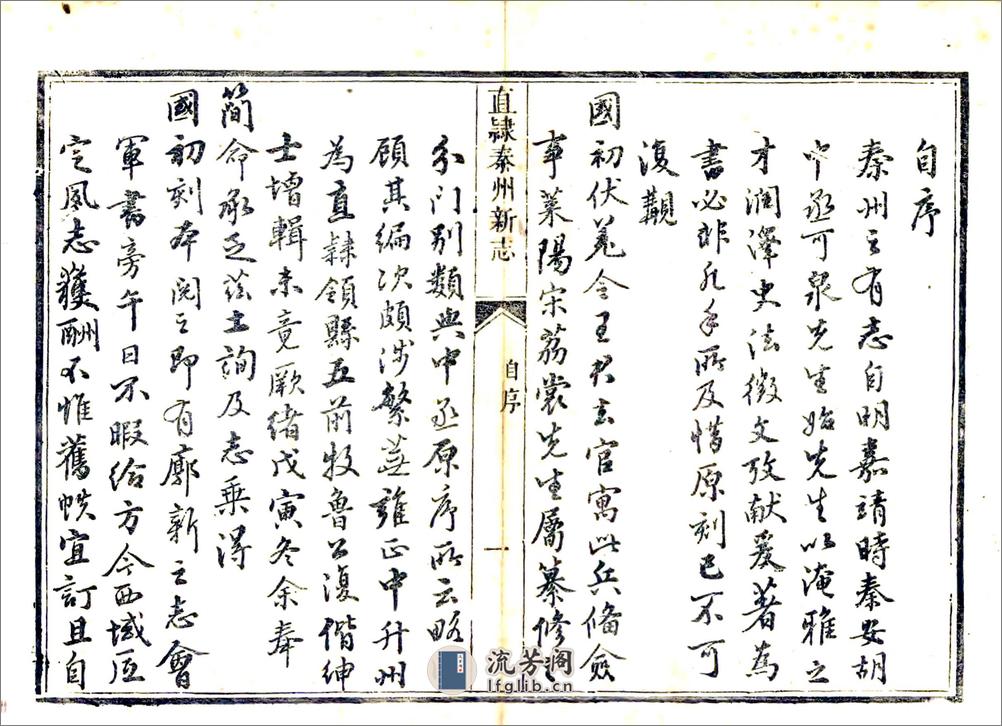 自序
秦州之有志自明嘉靖時秦安胡
中丞可泉先生始先生以淹雅之
才潤澤史法徵文攷献爰著為
書必非凡手所及惜原刻已不可
復覯
國初伏羌令王君玄官寓此兵備僉
事萊陽宋荔裳先生屬纂修之
直隸秦州新志
自序
一
分门别類與中丞原序所云略
顧其編次頗涉繁蕪雍正中升州
為直隸領縣五前牧魯公復偕紳
士增輯未竟厥緒戊寅冬余奉
簡命承乏茲土詢及志乘得
國初刻本閱之即有廓新之志會
軍書旁午日不暇給方今西域底
定夙志獲酬不惟舊帙宜訂且自
流芳阁
lfglib.cn